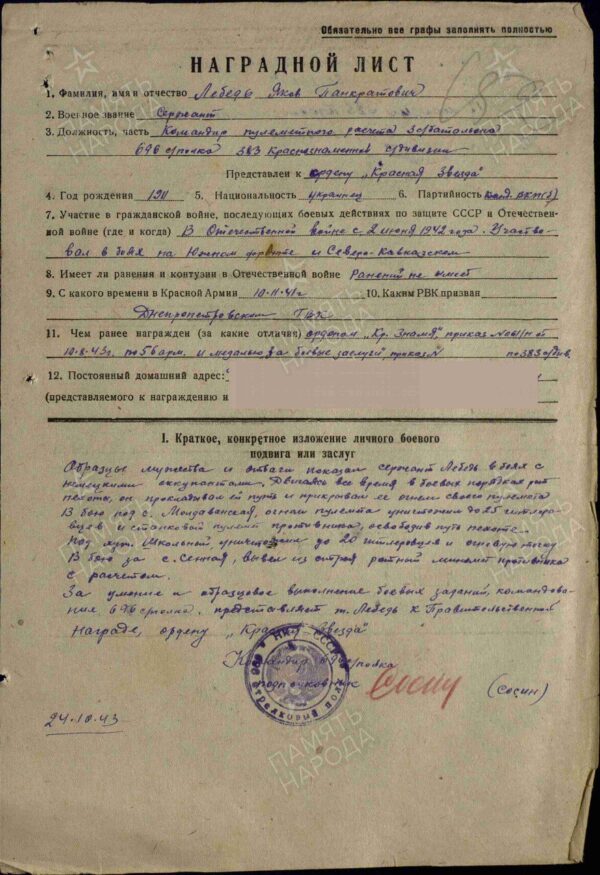 Обязательно все графы заполнять полностью
НАГРАДНОЙ ЛИСТ
1. Фамилия, имя и отчество Лебедь Яков Панкратович
2. Военное звание Сержант
3. Должность, часть Командир пулеметного расчета 3с/батальона
696 с/полка 383 Краснознаменной с/дивизии
Представлен к ордену „Красная Звезда"
4. Год рождения 1911 5. Национальность украинец 6. Партийность канд. ВКП(б)
7. Участие в гражданской войне, последующих боевых действиях по защите СССР и Отечествен-
ной войне (где и когда) В Отечественной войне с 2 июня 1942 года. Участво-
вал в боях на Южном фронте и Северо-Кавказском
8. Имеет ли ранения и контузии в Отечественной войне Ранений не имеет
9. С какого времени в Красной Армии 10.Каким РВК призван
Днепропетровским ГВК
11. Чем ранее награжден (за какие отличия) орденом „Кр. Знамя", приказ
по 56 арм. и медалью „За боевые заслуги", приказ № по 383 с/див.
12. Постоянный домашний адрес:
(представляемого к награждению и
I. Краткое, конкретное изложение личного боевого
подвига или заслуг
Образцы мужества и отваги показал сержант Лебедь в боях с
немецкими оккупантами. Двигаясь все время в боевых порядках рот
пехоты, он прокладывал ей путь и прикрывал ее огнем своего пулемета
В бою под с. Молдаванская, огнем пулемета уничтожил до 25 гитлеров-
цев и станковый пулемет противника, освободив путь пехоте.
Под хут. Школьный уничтожил до 20 гитлеровцев и огневую точку
В бою за с. Сенная, вывел из строя ротный миномет противника
с расчетом.
За умение и образцовое выполнение боевых заданий, командова-
ние 696 с/полка, представляет т. Лебедь к Правительственной
награде, ордену „Красная Звезда"
Командир 696 с/полка
подполковник (Сосин)
24.10.43
НКО СССР
696 стрелковый полк
ПАМЯТЬ
НАРОДА